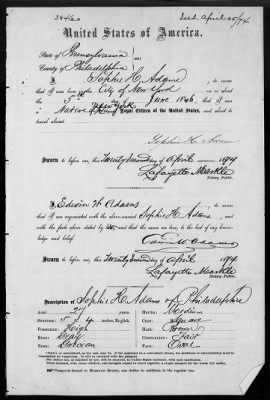 38460
Iss'd. April 25/74
United States of America.
State of Pennsylvania
County of Philadelphia
I, Sophie H. Adams, do swear
that I was born in the City of New York on the
5th June 1846, that I am
Native and Loyal Citizen of the United States, and about
to travel abroad.
Sophie H. Adams
Sworn to before me, this Twenty Second day of April 1874
Lafayette Markle
Notary Public.
I, Edwin W. Adams, do swear
that I am acquainted with the above-named Sophie H. Adams, and
with the facts above stated by her, and that they are true to the best of my know-
ledge and belief.
Edwin W. Adams
Sworn to before me, this Twenty Second day of April 1874
Lafayette Markle
Notary Public.
Description of Sophie H. Adams of Philadelphia
Age: 27
Stature: 5 ft 4 inches, English.
Forehead: High
Eyes: Gray
Nose: Grecian
Mouth: Medium
Chin: Square
Hair: Brown
Complexion: Fair
Face: Oval